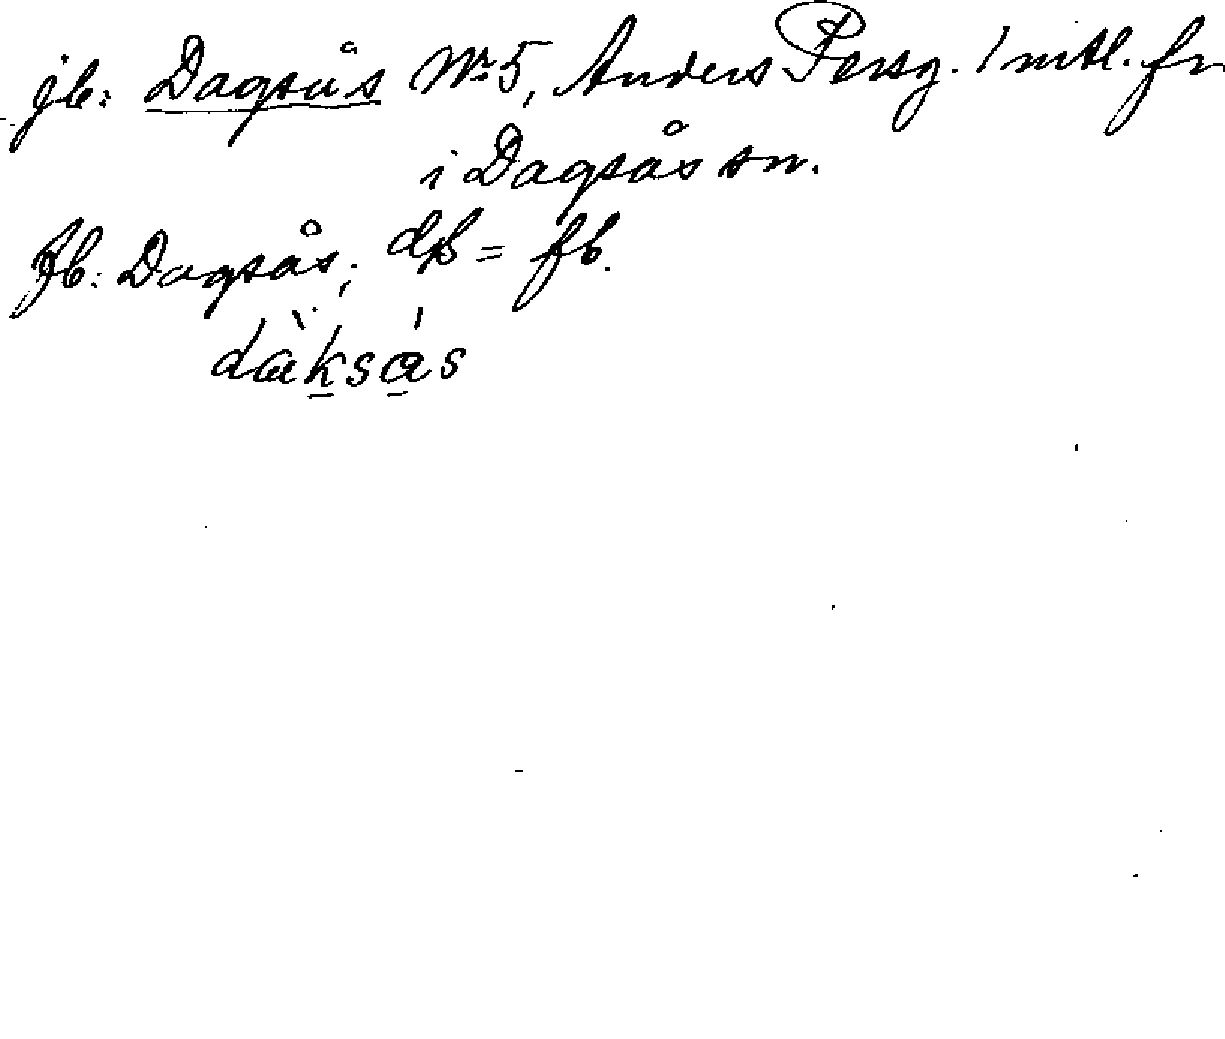 jb: Dagsås Nr 5, Anders Persg. 1 mtl. fr
i Dagsås sn.
fb: Dagsås; dß = fb.
dàksás